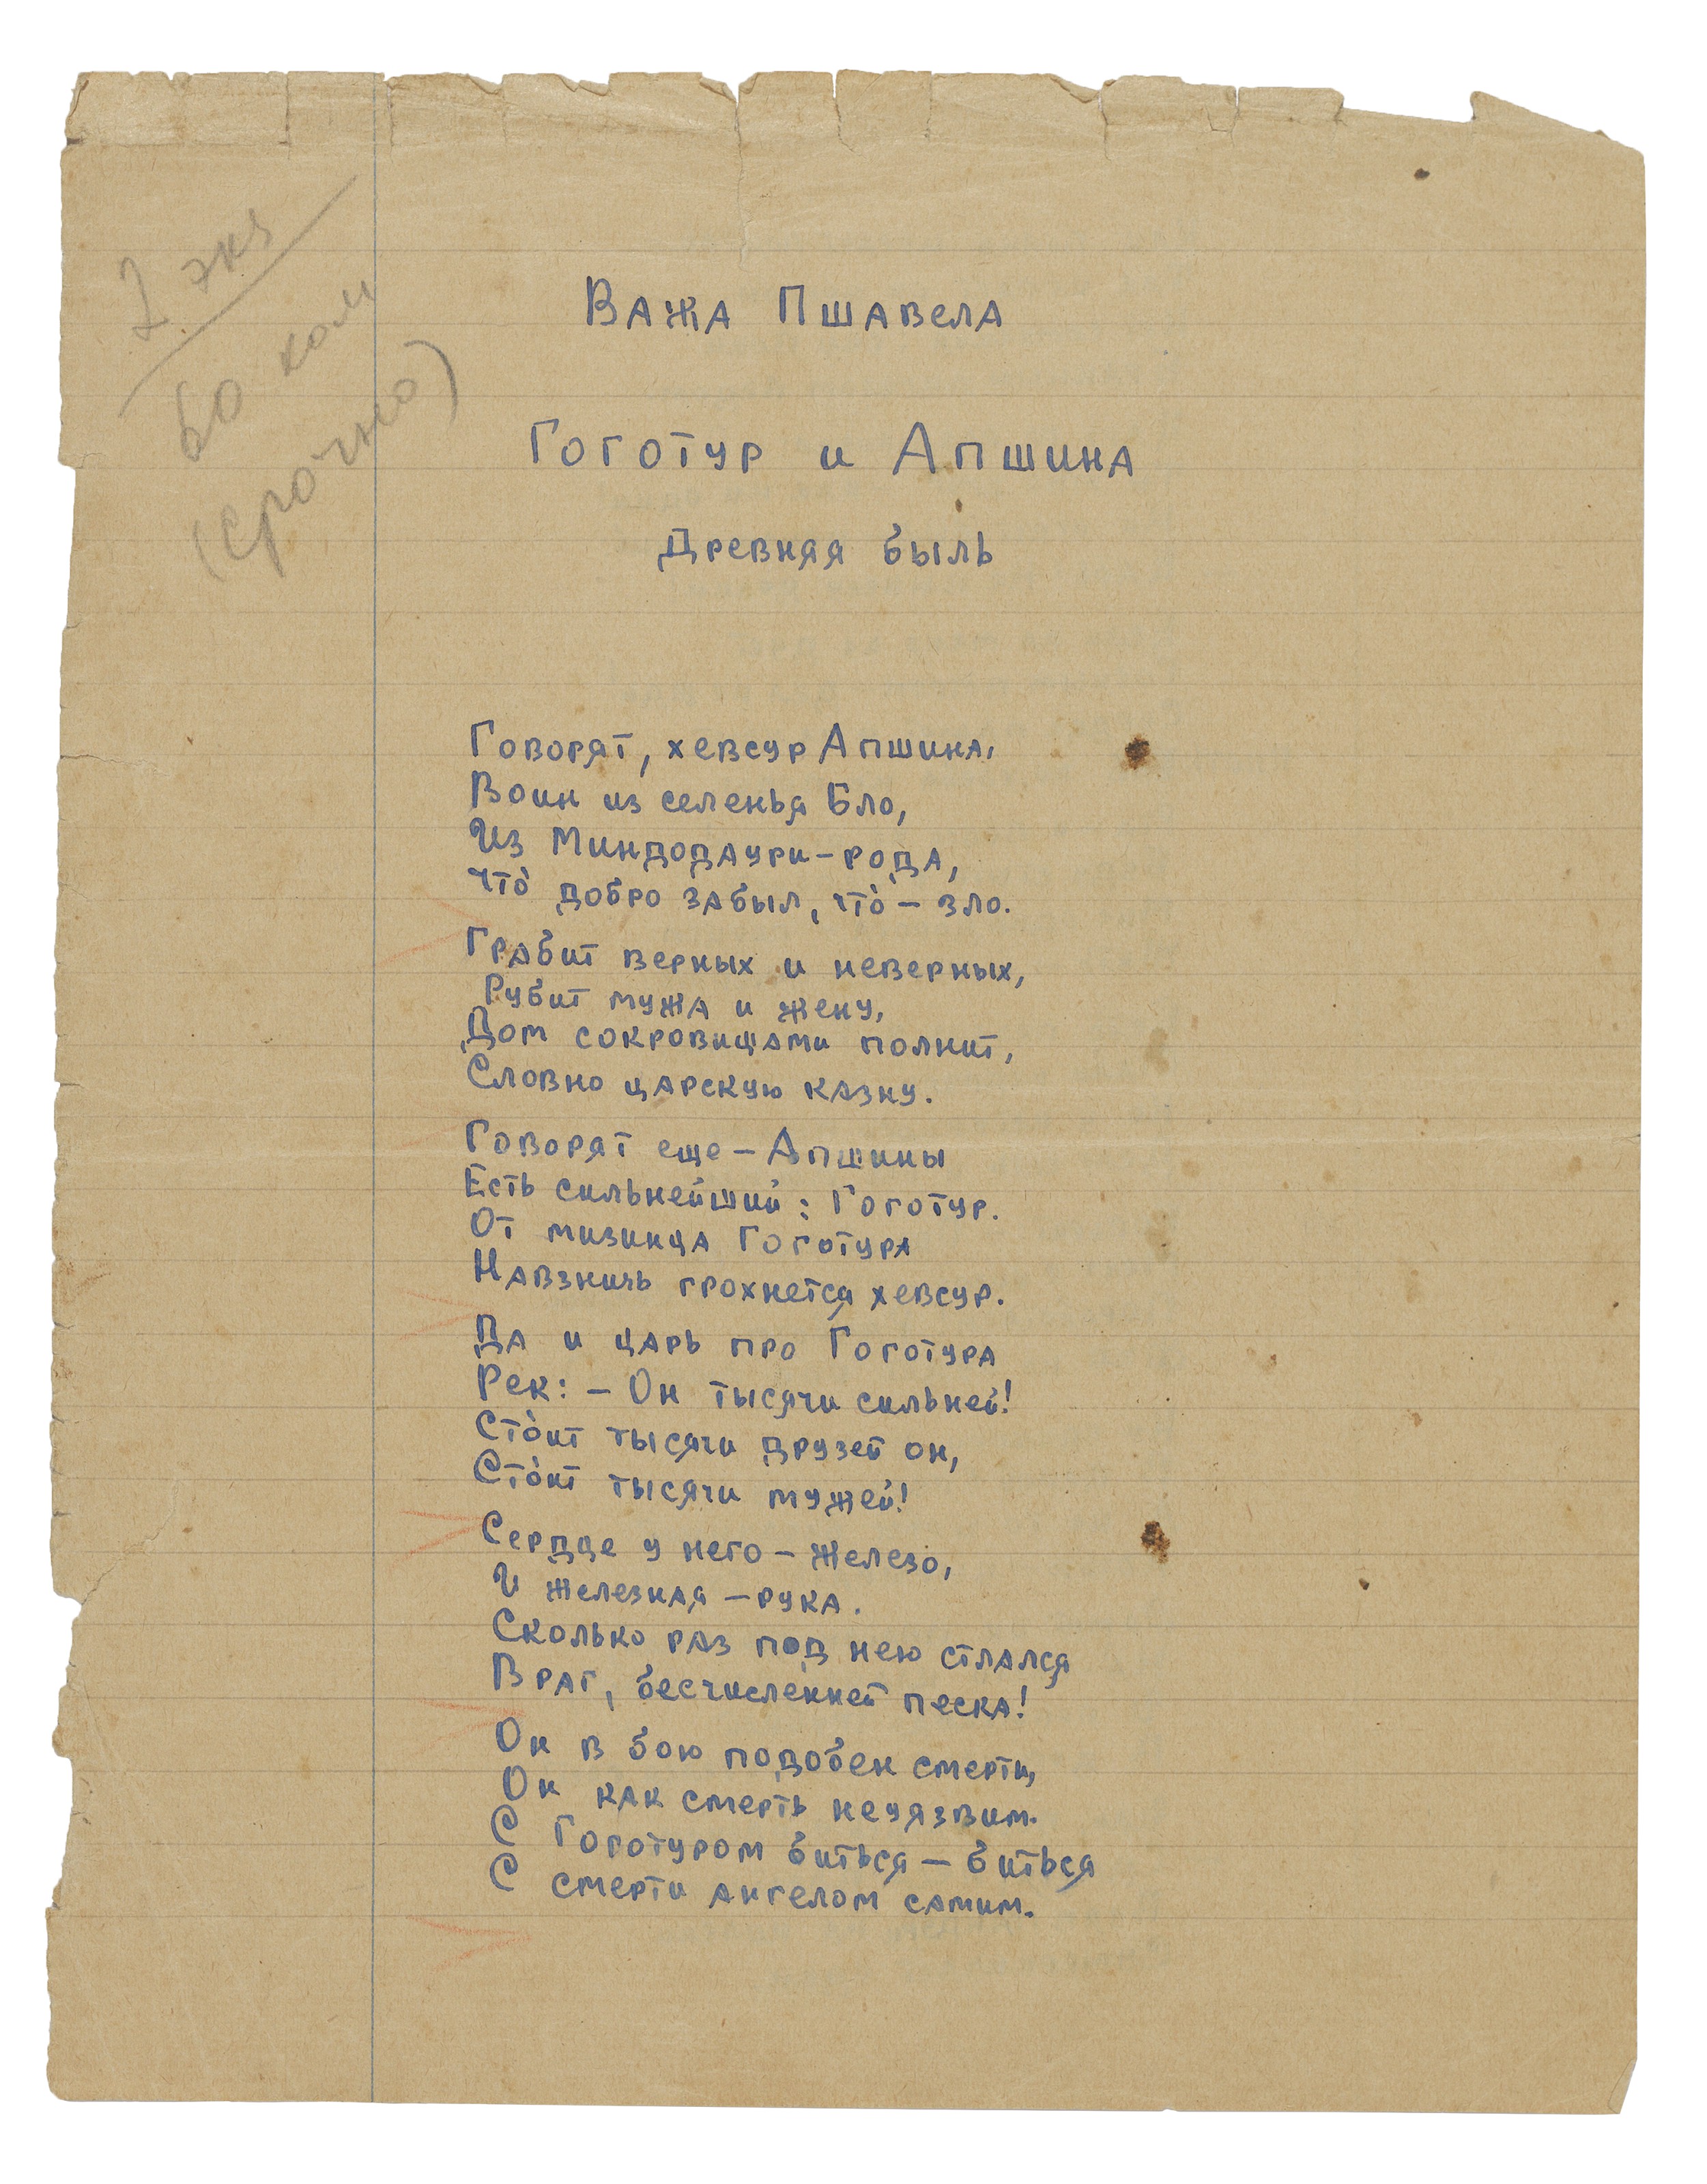 экз
60 коп
(срочно)
Важа Пшавела
Гоготур и Апшина
Древняя быль
Говорят, хевсур Апшина,
Воин из селенья Бло,
Из Миндодаури-рода,
Что̀ добро забыл, что̀ – зло.
Грабит верных и неверных,
Рубит мужа и жену,
Дом сокровищами полнит,
Словно царскую казну.
Говорят еще – Апшины
Есть сильнейший: Гоготур.
От мизинца Гоготура
Навзничь грохнется хевсур.
Да и царь про Гоготура
Рек: – Он тысячи сильней!
Сто̀ит тысячи друзей он,
Сто̀ит тысячи мужей!
Сердце у него – железо,
И железная – рука.
Сколько раз под нею стлался
Враг, бесчисленней песка!
Он в бою подобен смерти,
Он как смерть неуязвим.
С Гоготуром биться – биться
С смерти ангелом самим.